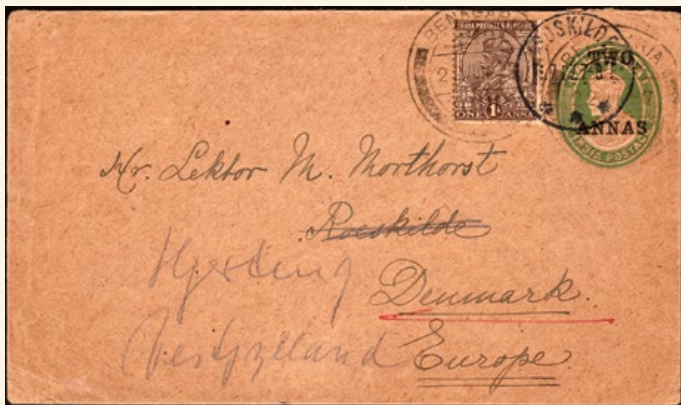 BENAGAR
ROSKILDE
INDIA POSTAGE & REVENUE
1
ONE ANNA
TWO
ANNAS
INDIA POSTAGE
Hr. Lektor M. Northorst
Roeskilde
Hjerting
Denmark.
Vestjylland
Europe